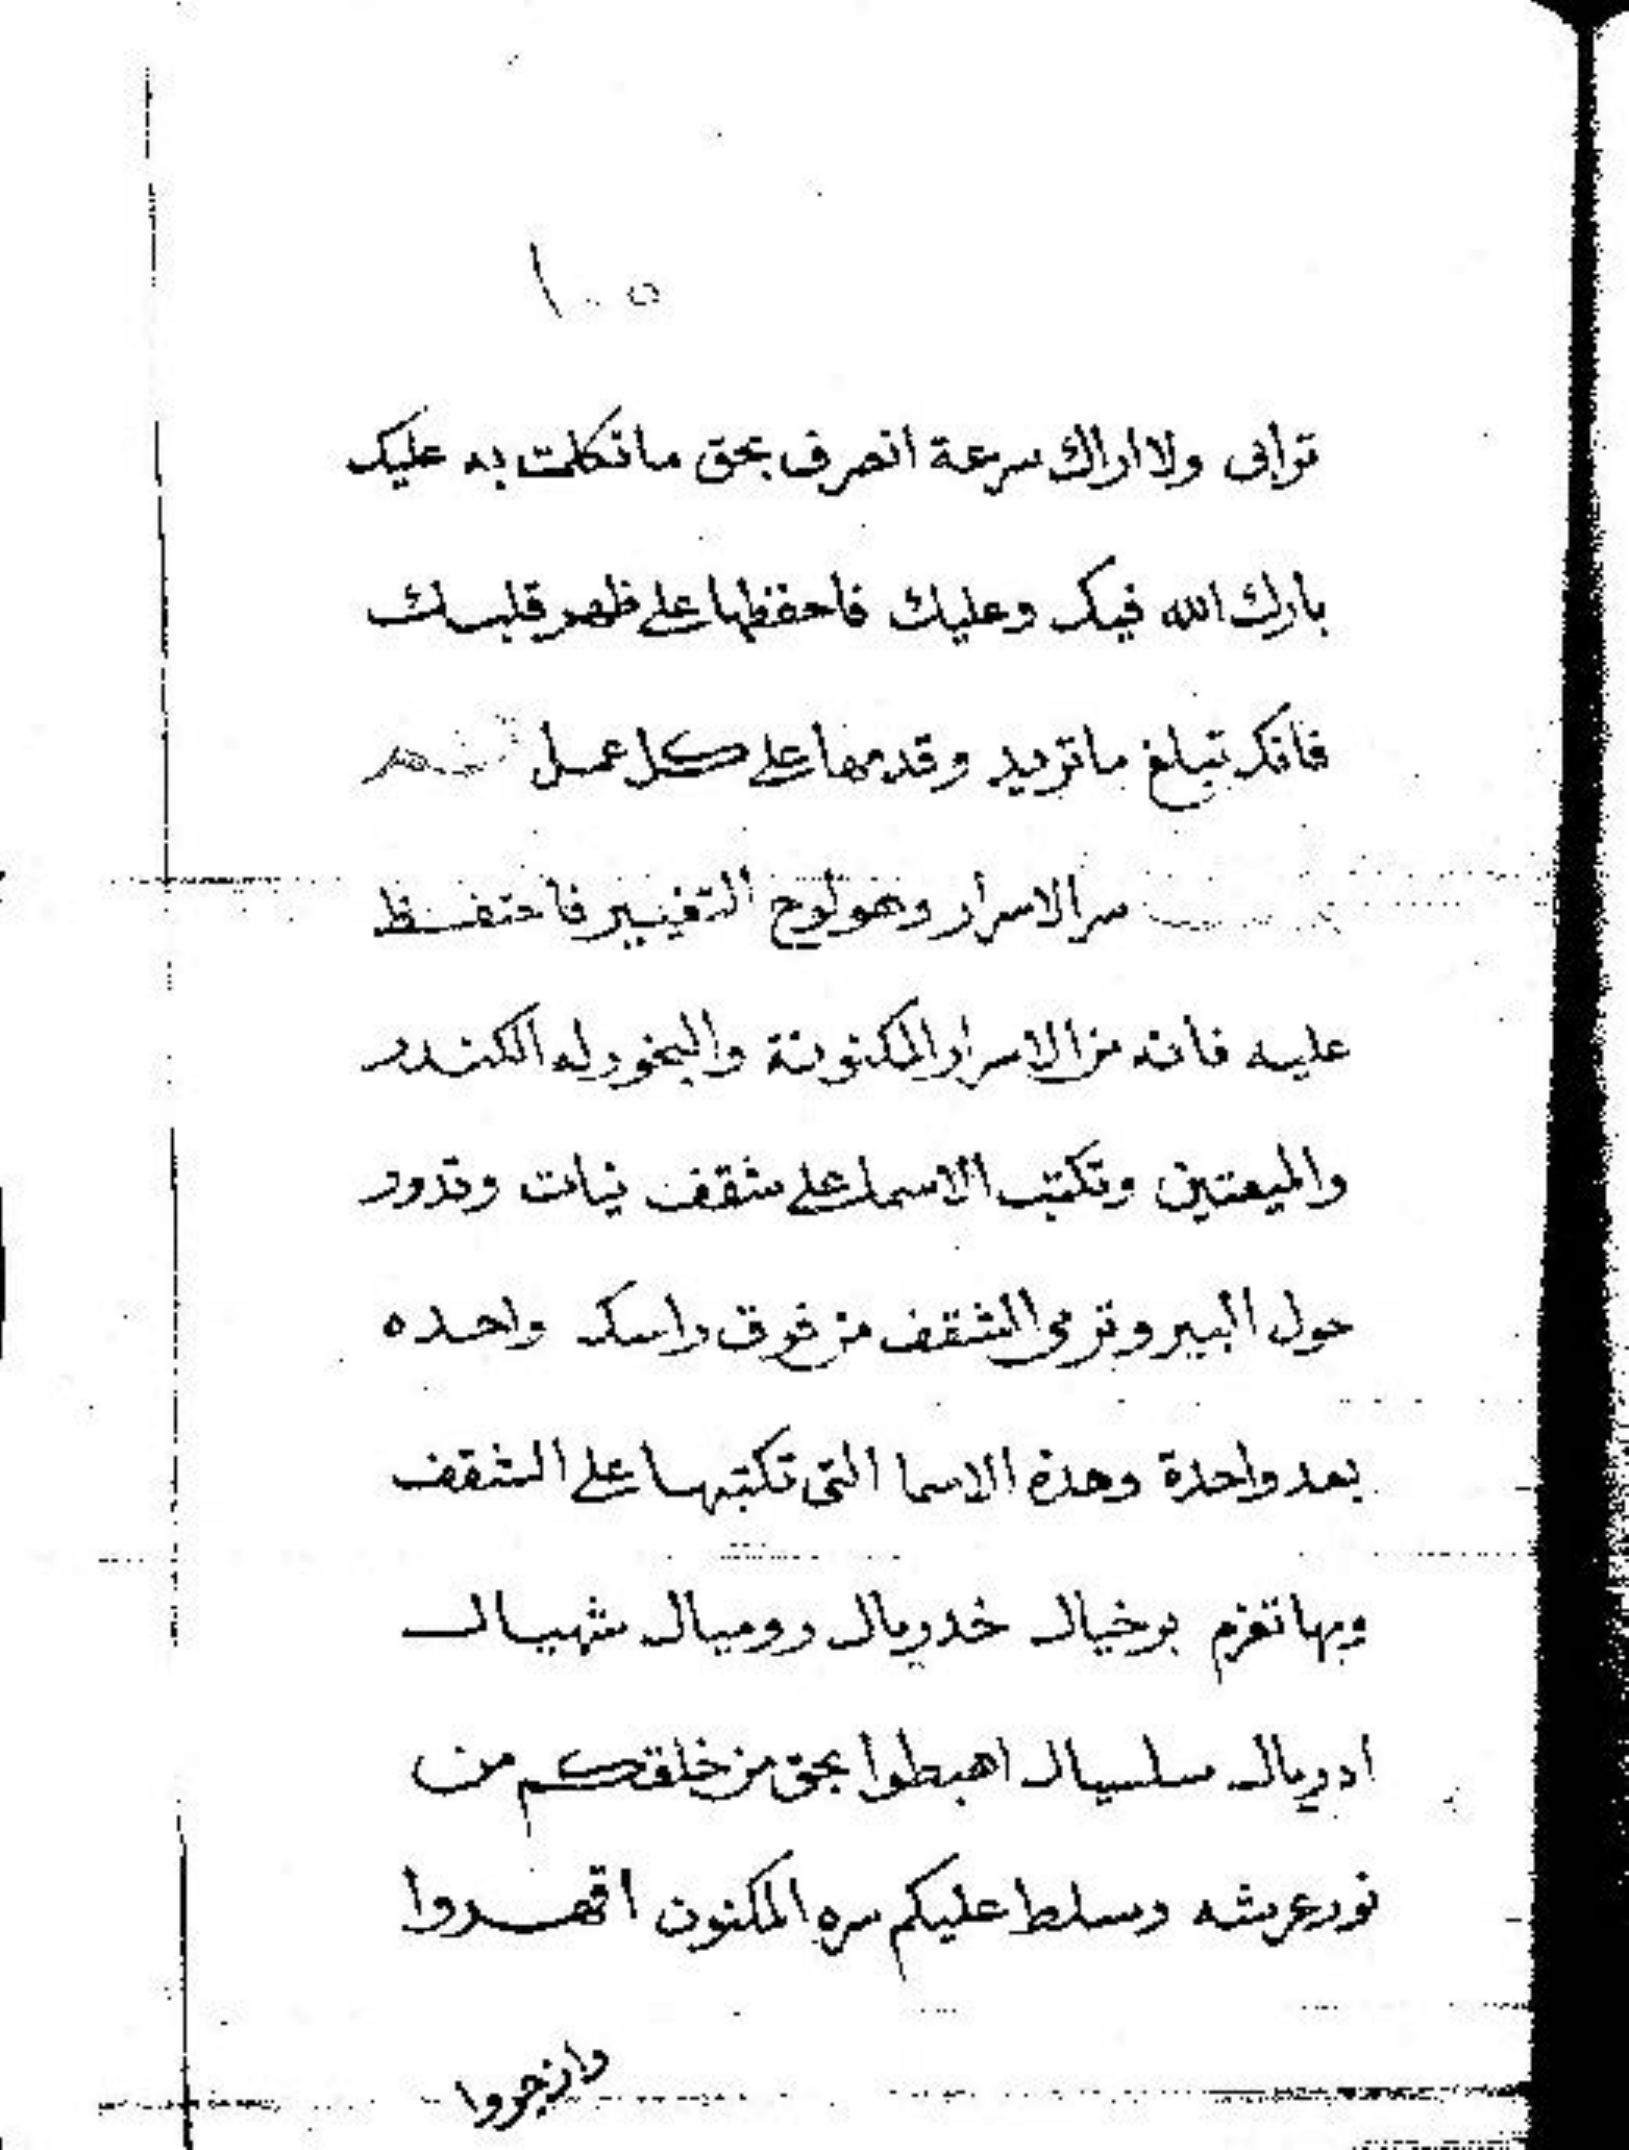 ١٠٥
تراني ولا اراك سرعة انصرف بحق ما تكلمت به عليك
بارك الله فيك وعليك فاحفظها على ظهر قلبك
فانك تبلغ ما تريد وقدمها على كل عمل
سر الاسرار وهو لوح التغيير فاحتفظ
عليه فانه من الاسرار المكنونة والبخور له الكندر
والميعتين وتكتب الاسما على شقف نيات وتدور
حول البير وترمى الشقف من فوق راسك واحده
بعد واحدة وهذة الاسما التى تكتبها على الشقف
وبها تعزم برخيال خدريال روميال شهيال
ادريال سلسيال اهبطوا بحق من خلقكم من
نور عرشه وسلط عليكم سره المكنون اقهدوا
وازجروا